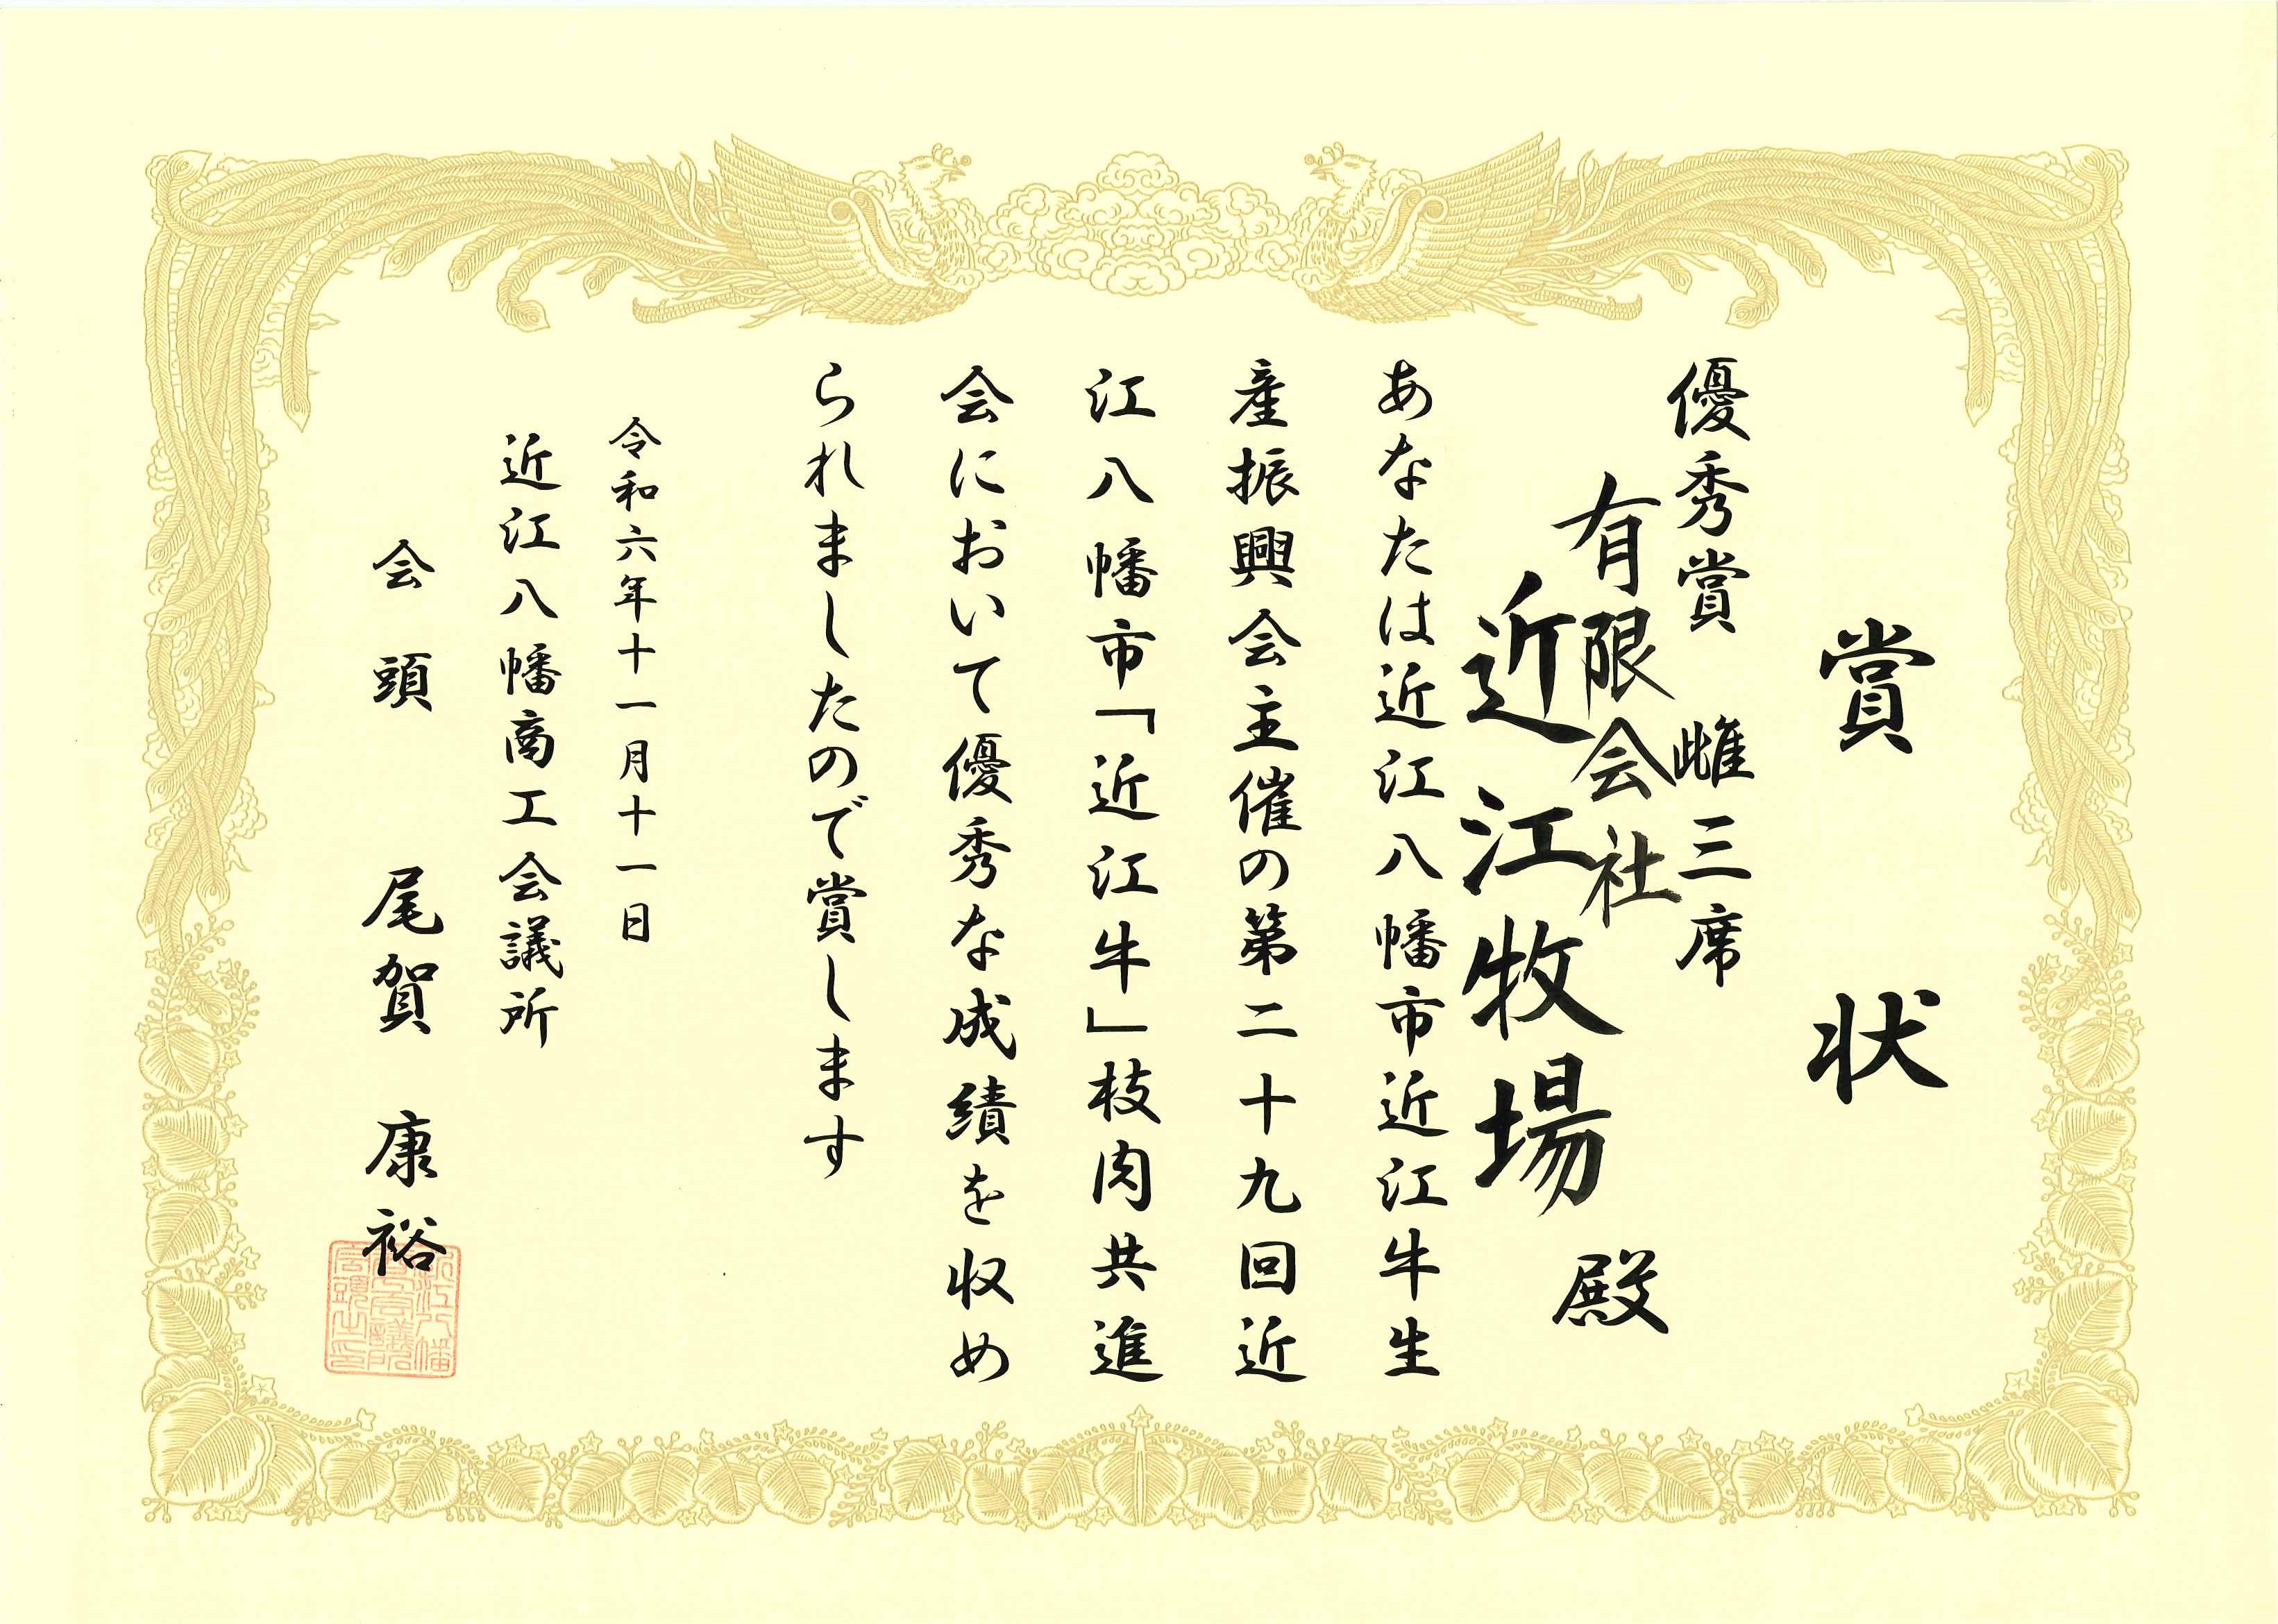 賞状
優秀賞 雌三席
有限会社
近江牧場 殿
あなたは近江八幡市近江牛生
産振興会主催の第二十九回近
江八幡市「近江牛」枝肉共進
会において優秀な成績を収め
られましたので賞します
令和六年十一月十一日
近江八幡商工会議所
会頭 尾賀 康裕
近江八幡
商工会議所
会頭之印